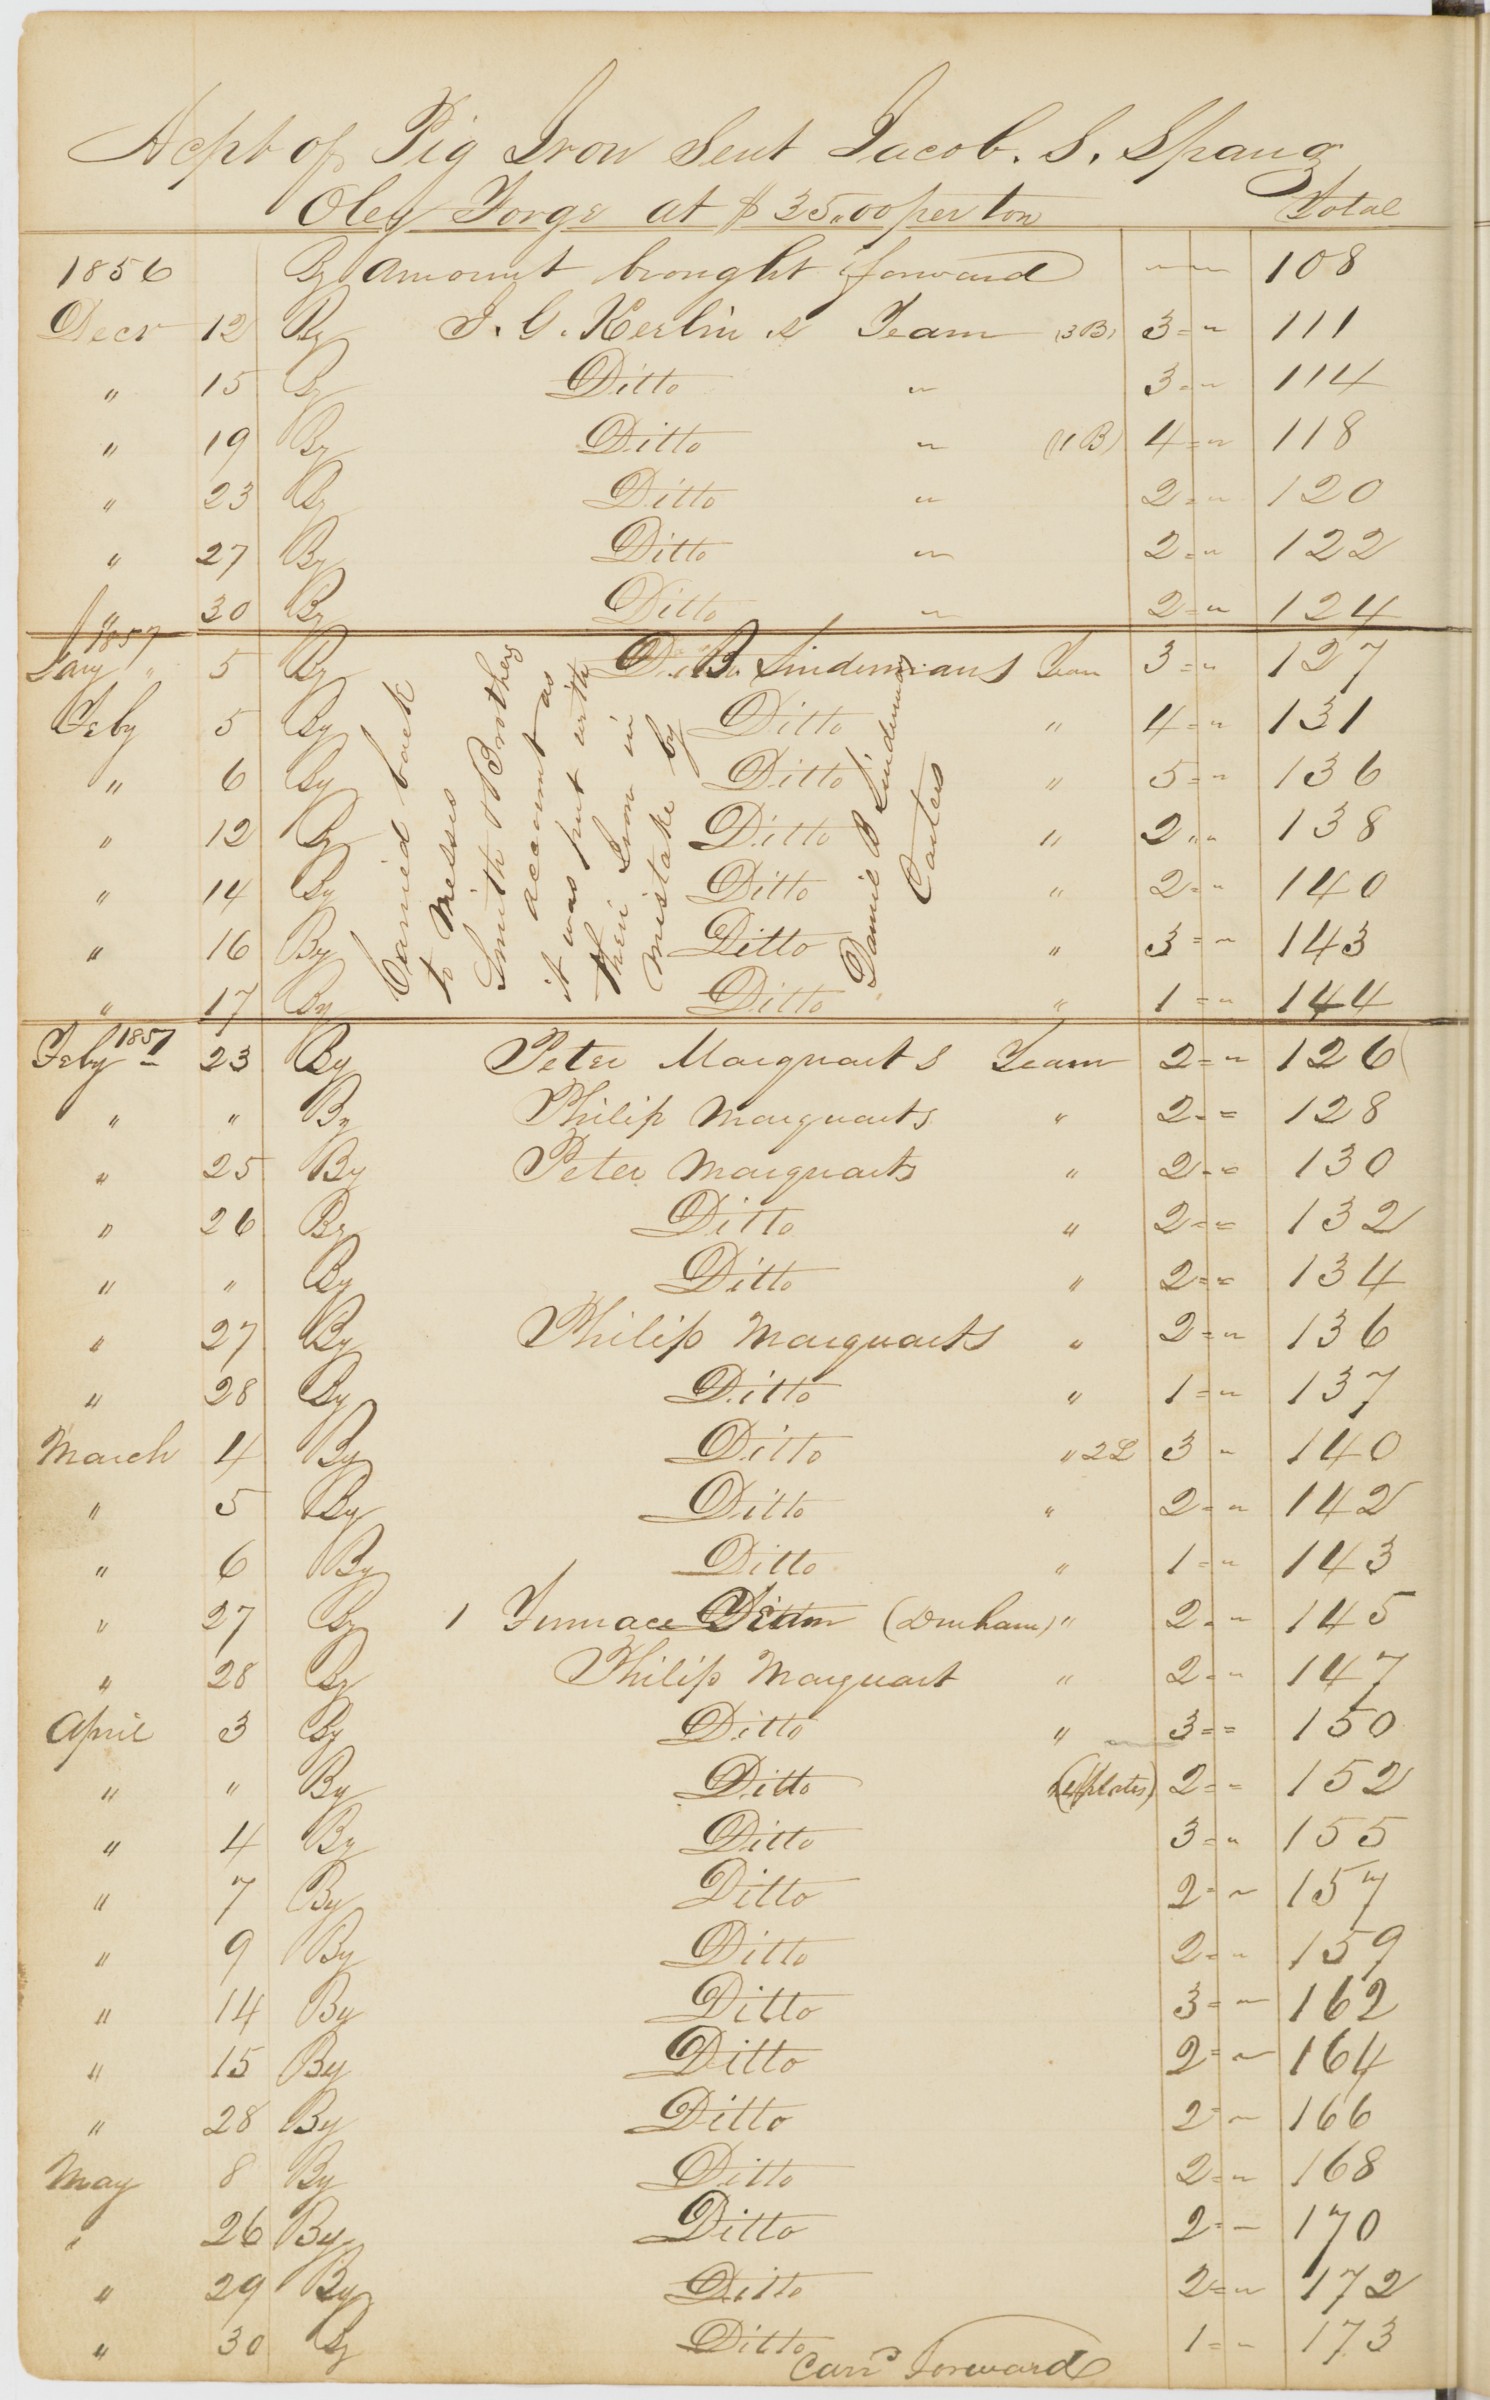 Acpt of Pig Iron Sent Jacob. S. Spang
Oley Forge at $35.00 per ton Total
1856 By amount brought forward 〃 〃 108
Decr 12 By J. G. Kerlin s Team (3B) 3 = 〃 111
〃 15 By Ditto 〃 3 = 〃 114
〃 19 By Ditto 〃 (1B) 4 = 〃 118
〃 23 By Ditto 〃 2 = 〃 120
〃 27 By Ditto 〃 2 = 〃 122
〃 30 By Ditto 〃 2 = 〃 124
1857
Jany 〃 5 By D. B. Lindermans Team 3 = 〃 127
Feby 5 By Ditto 〃 4 = 〃 131
〃 6 By Ditto 〃 5 = 〃 136
〃 12 By Ditto 〃 2 〃 〃 138
〃 14 By Ditto 〃 2 = 〃 140
〃 16 By Ditto 〃 3 = 〃 143
〃 17 By Ditto 〃 1 = 〃 144
Carried back
to Messrs
Smith & Brothers
account as
it was put with
their Iron in
mistake by
Daniel B Linderman
Carters
Feby 1857 23 By Peter Marquarts Team 2 = 〃 126
〃 〃 By Philip Marquarts 〃 2 = = 128
〃 25 By Peter Marquarts 〃 2 = = 130
〃 26 By Ditto 〃 2 = = 132
〃 〃 By Ditto 〃 2 = = 134
〃 27 By Philip Marquarts 〃 2 = 〃 136
〃 28 By Ditto 〃 1 = 〃 137
March 4 By Ditto 〃 2L 3 〃 140
〃 5 By Ditto 〃 2 = 〃 142
〃 6 By Ditto 〃 1 = 〃 143
〃 27 By 1 Furnace Team (Durham) 〃 2 = 〃 145
〃 28 By Philip Marquart 〃 2 = 〃 147
April 3 By Ditto 〃 3 = = 150
〃 〃 By Ditto 2 = = 152
〃 4 By Ditto 3 = 〃 155
〃 7 By Ditto 2 = 〃 157
〃 9 By Ditto 2 = 〃 159
〃 14 By Ditto 3 = 〃 162
〃 15 By Ditto 2 = 〃 164
〃 28 By Ditto 2 = 〃 166
May 8 By Ditto 2 = 〃 168
〃 26 By Ditto 2 = 〃 170
〃 29 By Ditto 2 = 〃 172
〃 30 By Ditto 1 = 〃 173
Carrd Forward